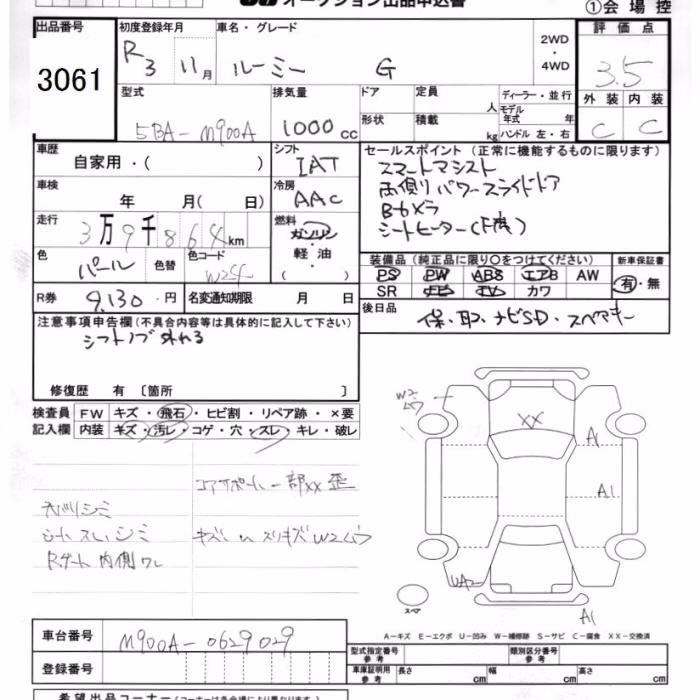 オークション出品申込書
①会場控
出品番号
3061
初度登録年月
R3 11月
車名・グレード
ルーミー G
2WD
・
4WD
評価点
3.5
外装 内装
C C
型式
5BA-M900A
排気量
1000cc
ドア
形状
定員
人
積載
kg
ディーラー・並行
モデル
年式 年
ハンドル 左・右
車歴
自家用・( )
シフト
IAT
車検
年 月( 日)
冷房
AAC
走行
3万9千864km
燃料
ガソリン
・
軽油
( )
色
パール
色替
色コード
W24
R券
9,130円
名変通知期限 月 日
セールスポイント(正常に機能するものに限ります)
スマートアシスト
両側パワースライドドア
Bカメラ
シートヒーター(F席)
装備品(純正品に限り○をつけてください)
PS PW ABS エアB AW
SR ナビ TV カワ
新車保証書
有・無
後日品
保・取・ナビSD・スペアキー
注意事項申告欄(不具合内容等は具体的に記入して下さい)
シフトノブ外れる
修復歴 有〔箇所 〕
検査員
記入欄
FW キズ・飛石・ヒビ割・リペア跡・×要
内装 キズ・汚レ・コゲ・穴・スレ・キレ・破レ
コアサポート一部XX歪
天バリシミ
シートスレ、シミ
Rゲート内側ワレ
W2ムラ
XX
A1
A1
UA2
A1
スペア
A-キズ E-エクボ U-凹み W-補修跡 S-サビ C-腐食 XX-交換済
車台番号
M900A-0629029
登録番号
型式指定番号
参考
類別区分番号
参考
車庫証明用
参考
長さ cm 幅 cm 高さ cm
希望出品コーナー